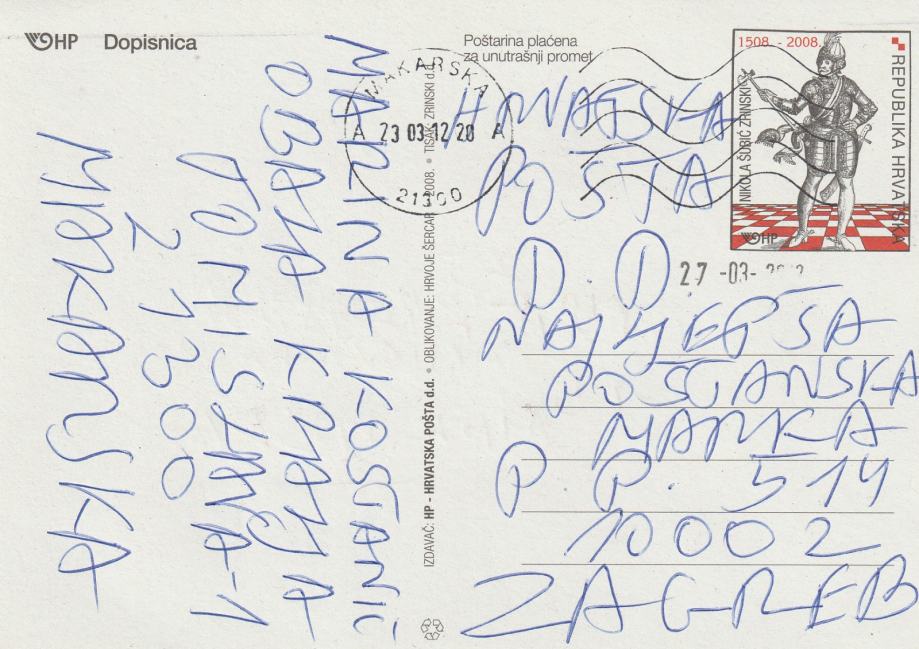 HP Dopisnica
Poštarina plaćena
za unutrašnji promet
1508. - 2008.
REPUBLIKA HRVATSKA
NIKOLA ŠUBIĆ ZRINSKI
HP
MAKARSKA
A 23 03 12 20 A
21300
27 -03-
HRVATSKA
POŠTA
D. D.
NAJLJEPŠA
POŠTANSKA
MARKA
P. P. 514
10002
ZAGREB
IZDAVAČ: HP - HRVATSKA POŠTA d.d. • OBLIKOVANJE: HRVOJE ŠERCAR 2008. • TISAK: ZRINSKI d.d.
MARINA KOSTANIĆ
OBALA KRALJA
TOMISLAVA-1
21300
MAKARSKA